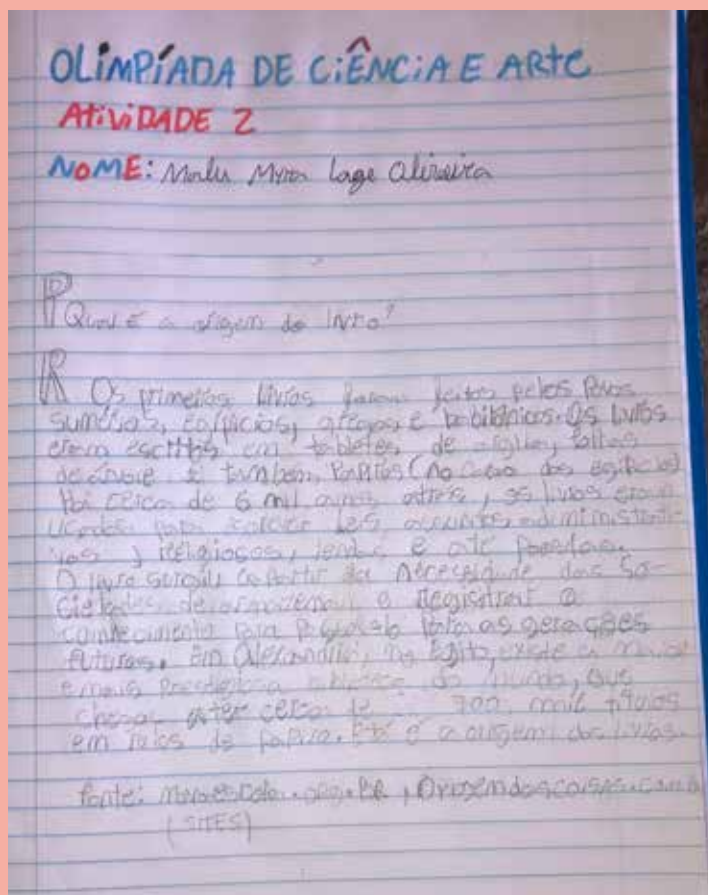 OLIMPÍADA DE CIÊNCIA E ARTE
ATIVIDADE 2
NOME: Malu Myra Lage Oliveira
P Qual é a origem do livro?
R Os primeiros livros foram feitos pelos Povos
sumérios, egípcios, gregos e babilônicos. Os livros
eram escritos em tabletes de argila, folhas
de e também, Papiros (no caso dos egípcios)
Há cerca de 6 mil anos atrás, os livros eram
usados para leis administrati
vas, religiosos, lendas e até Poesias.
O livro surgiu a partir da necessidade das So-
ciedades de armazenar e Registrar o
conhecimento para para as gerações
futuras. Em Alexandria, no Egito, existe a maior
e mais biblioteca do mundo, que
chegou a ter cerca de 700 mil títulos
em rolos de papiro. é a origem dos livros.
fonte:
(SITES)